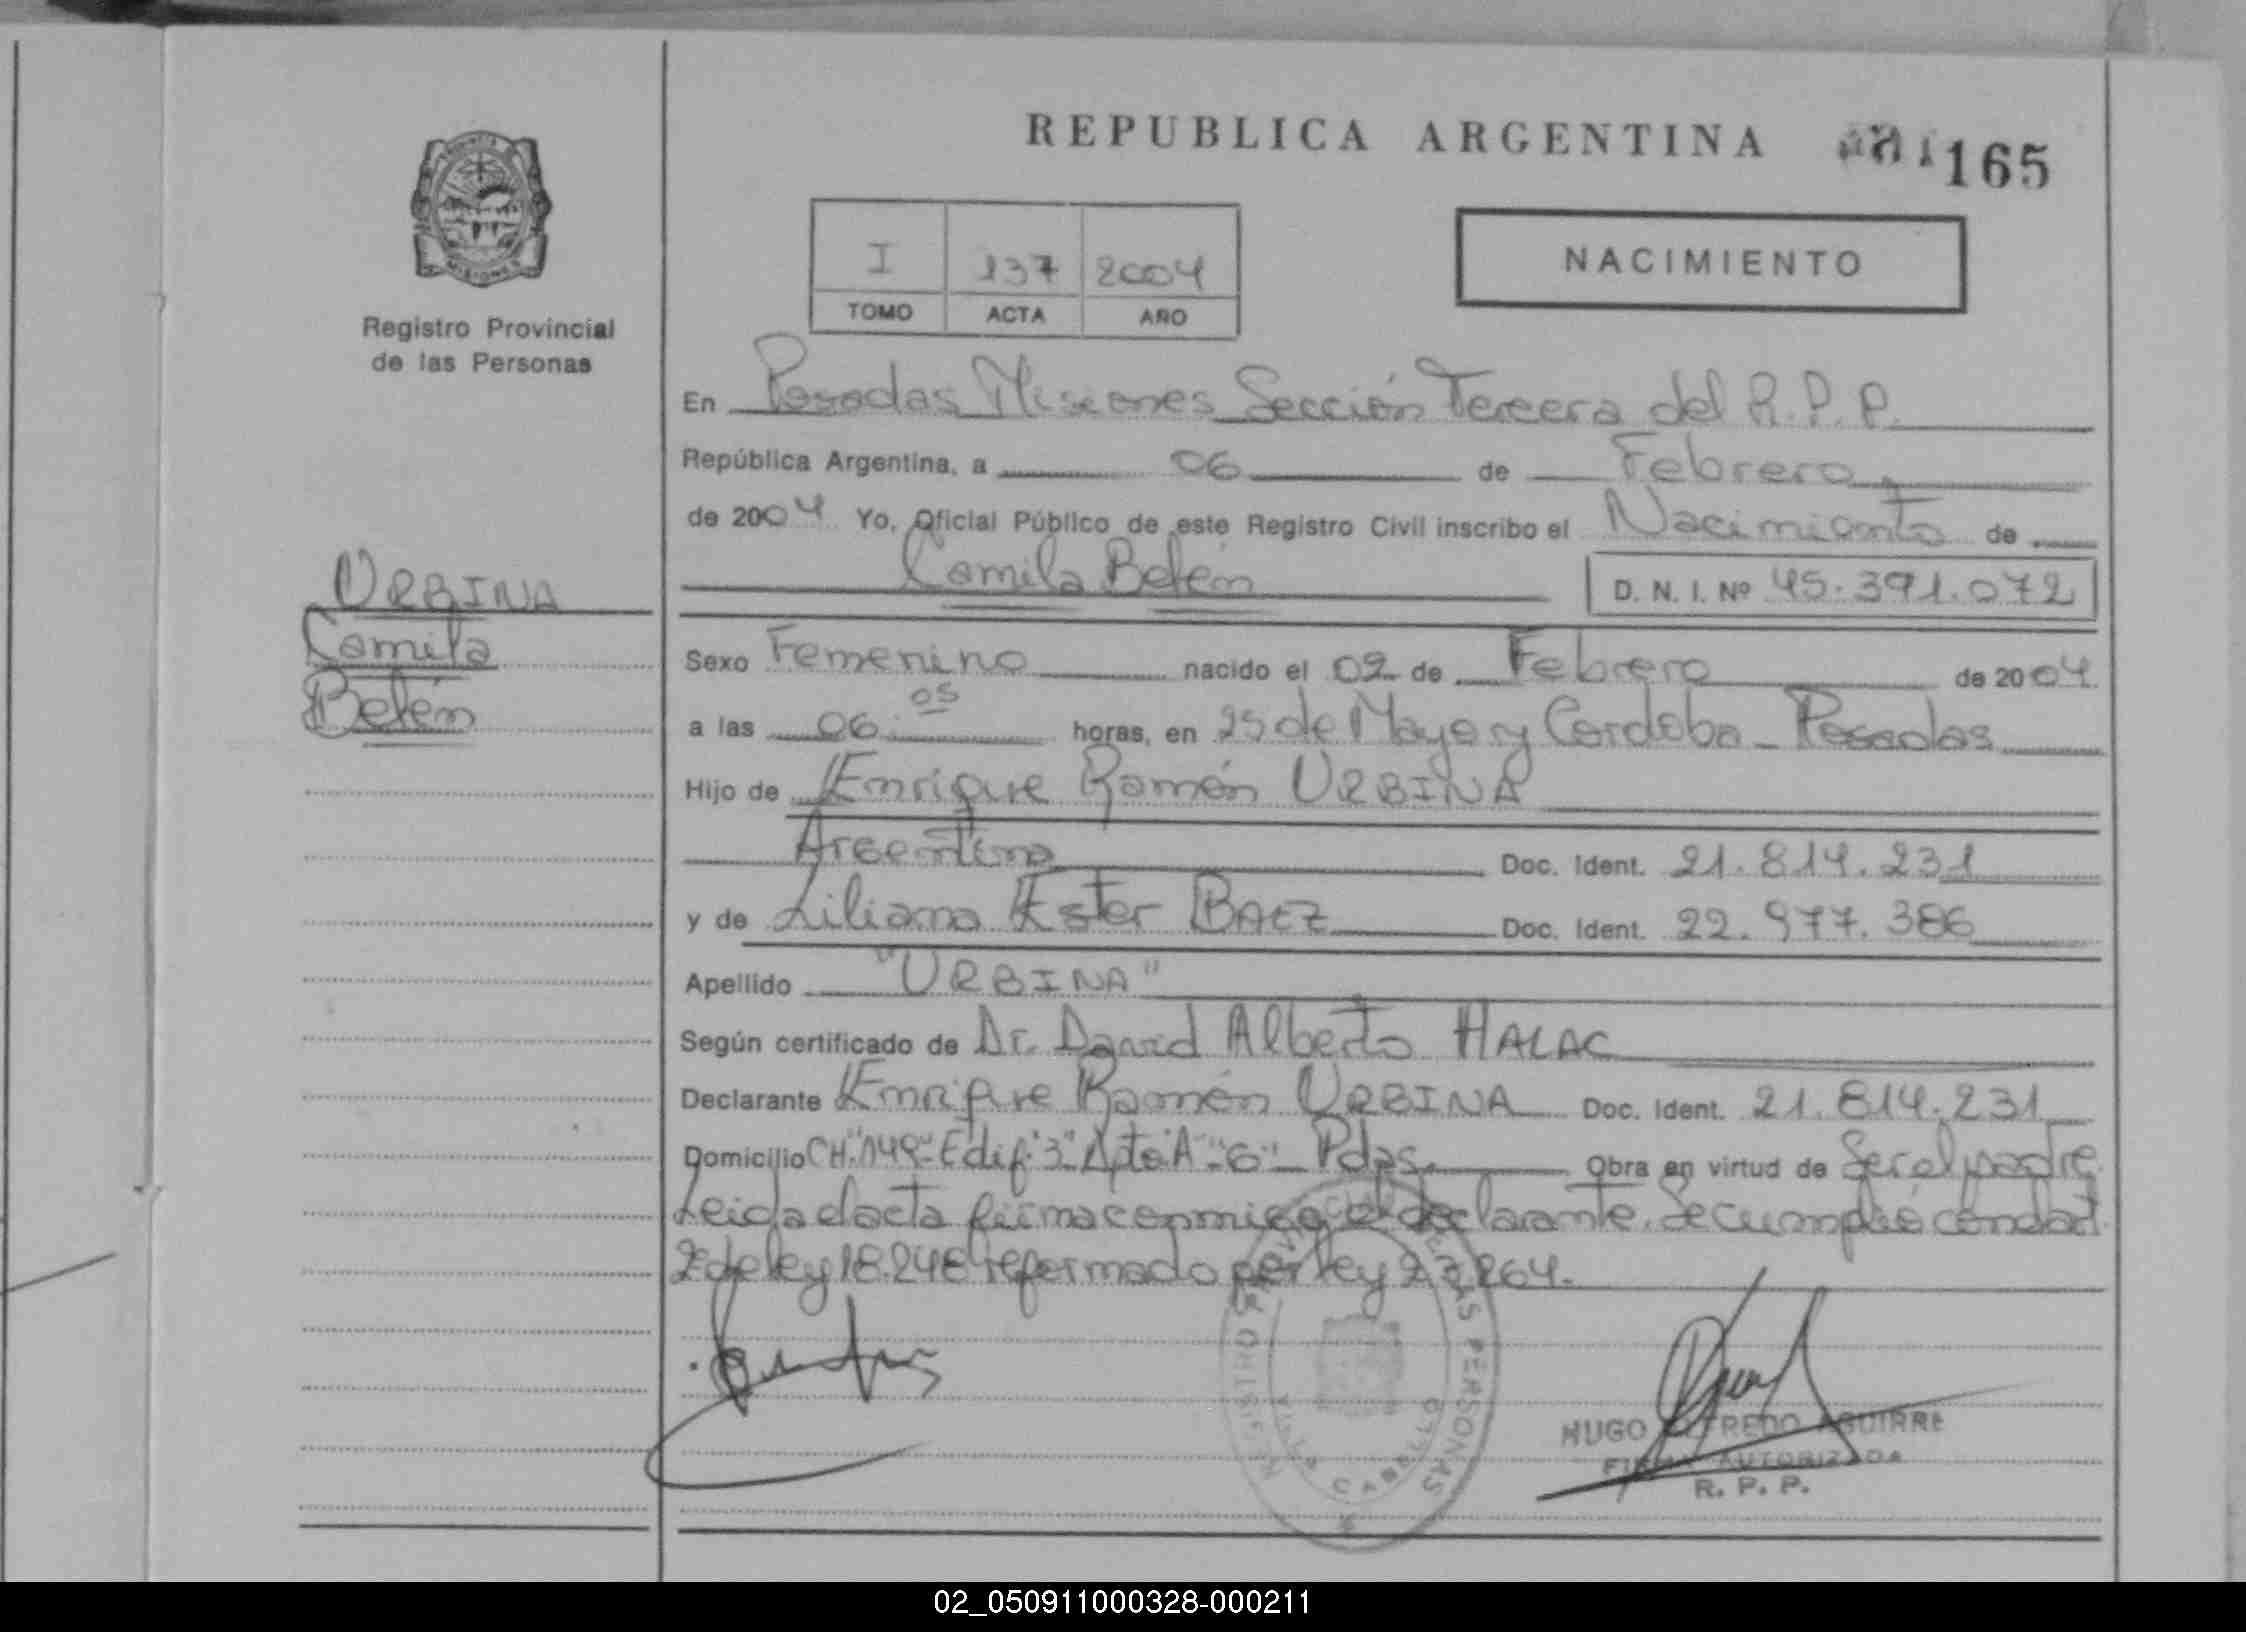 REPUBLICA ARGENTINA
165
MISIONES
Registro Provincial
de las Personas
I 137 2004
TOMO ACTA AÑO
NACIMIENTO
En Posadas Misiones Sección Tercera del R.P.P.
República Argentina, a 06 de Febrero
de 2004 Yo, Oficial Público de este Registro Civil inscribo el Nacimiento de
Camila Belén D. N. I. Nº 45.391.072
URBINA
Camila
Belén
Sexo Femenino nacido el 02 de Febrero de 2004
a las 06:05 horas, en 25 de Mayo y Cordoba - Posadas
Hijo de Enrique Ramón URBINA
Argentino Doc. Ident. 21.814.231
y de Liliana Ester BAEZ Doc. Ident. 22.977.386
Apellido "URBINA"
Según certificado de Dr. David Alberto HALAC
Declarante Enrique Ramón URBINA Doc. Ident. 21.814.231
Domicilio CH."149" Edif."3" Apto"A"-"6" - Pdas. Obra en virtud de Ser el padre
Leida el acta firma conmigo el declarante. Se cumplió con el art.
2º de ley 18.248 reformado por ley 23.264.
REGISTRO PROVINCIAL DE LAS PERSONAS
VILLA CABELLO
HUGO ALFREDO AGUIRRE
FIRMA AUTORIZADA
R. P. P.
02_050911000328-000211